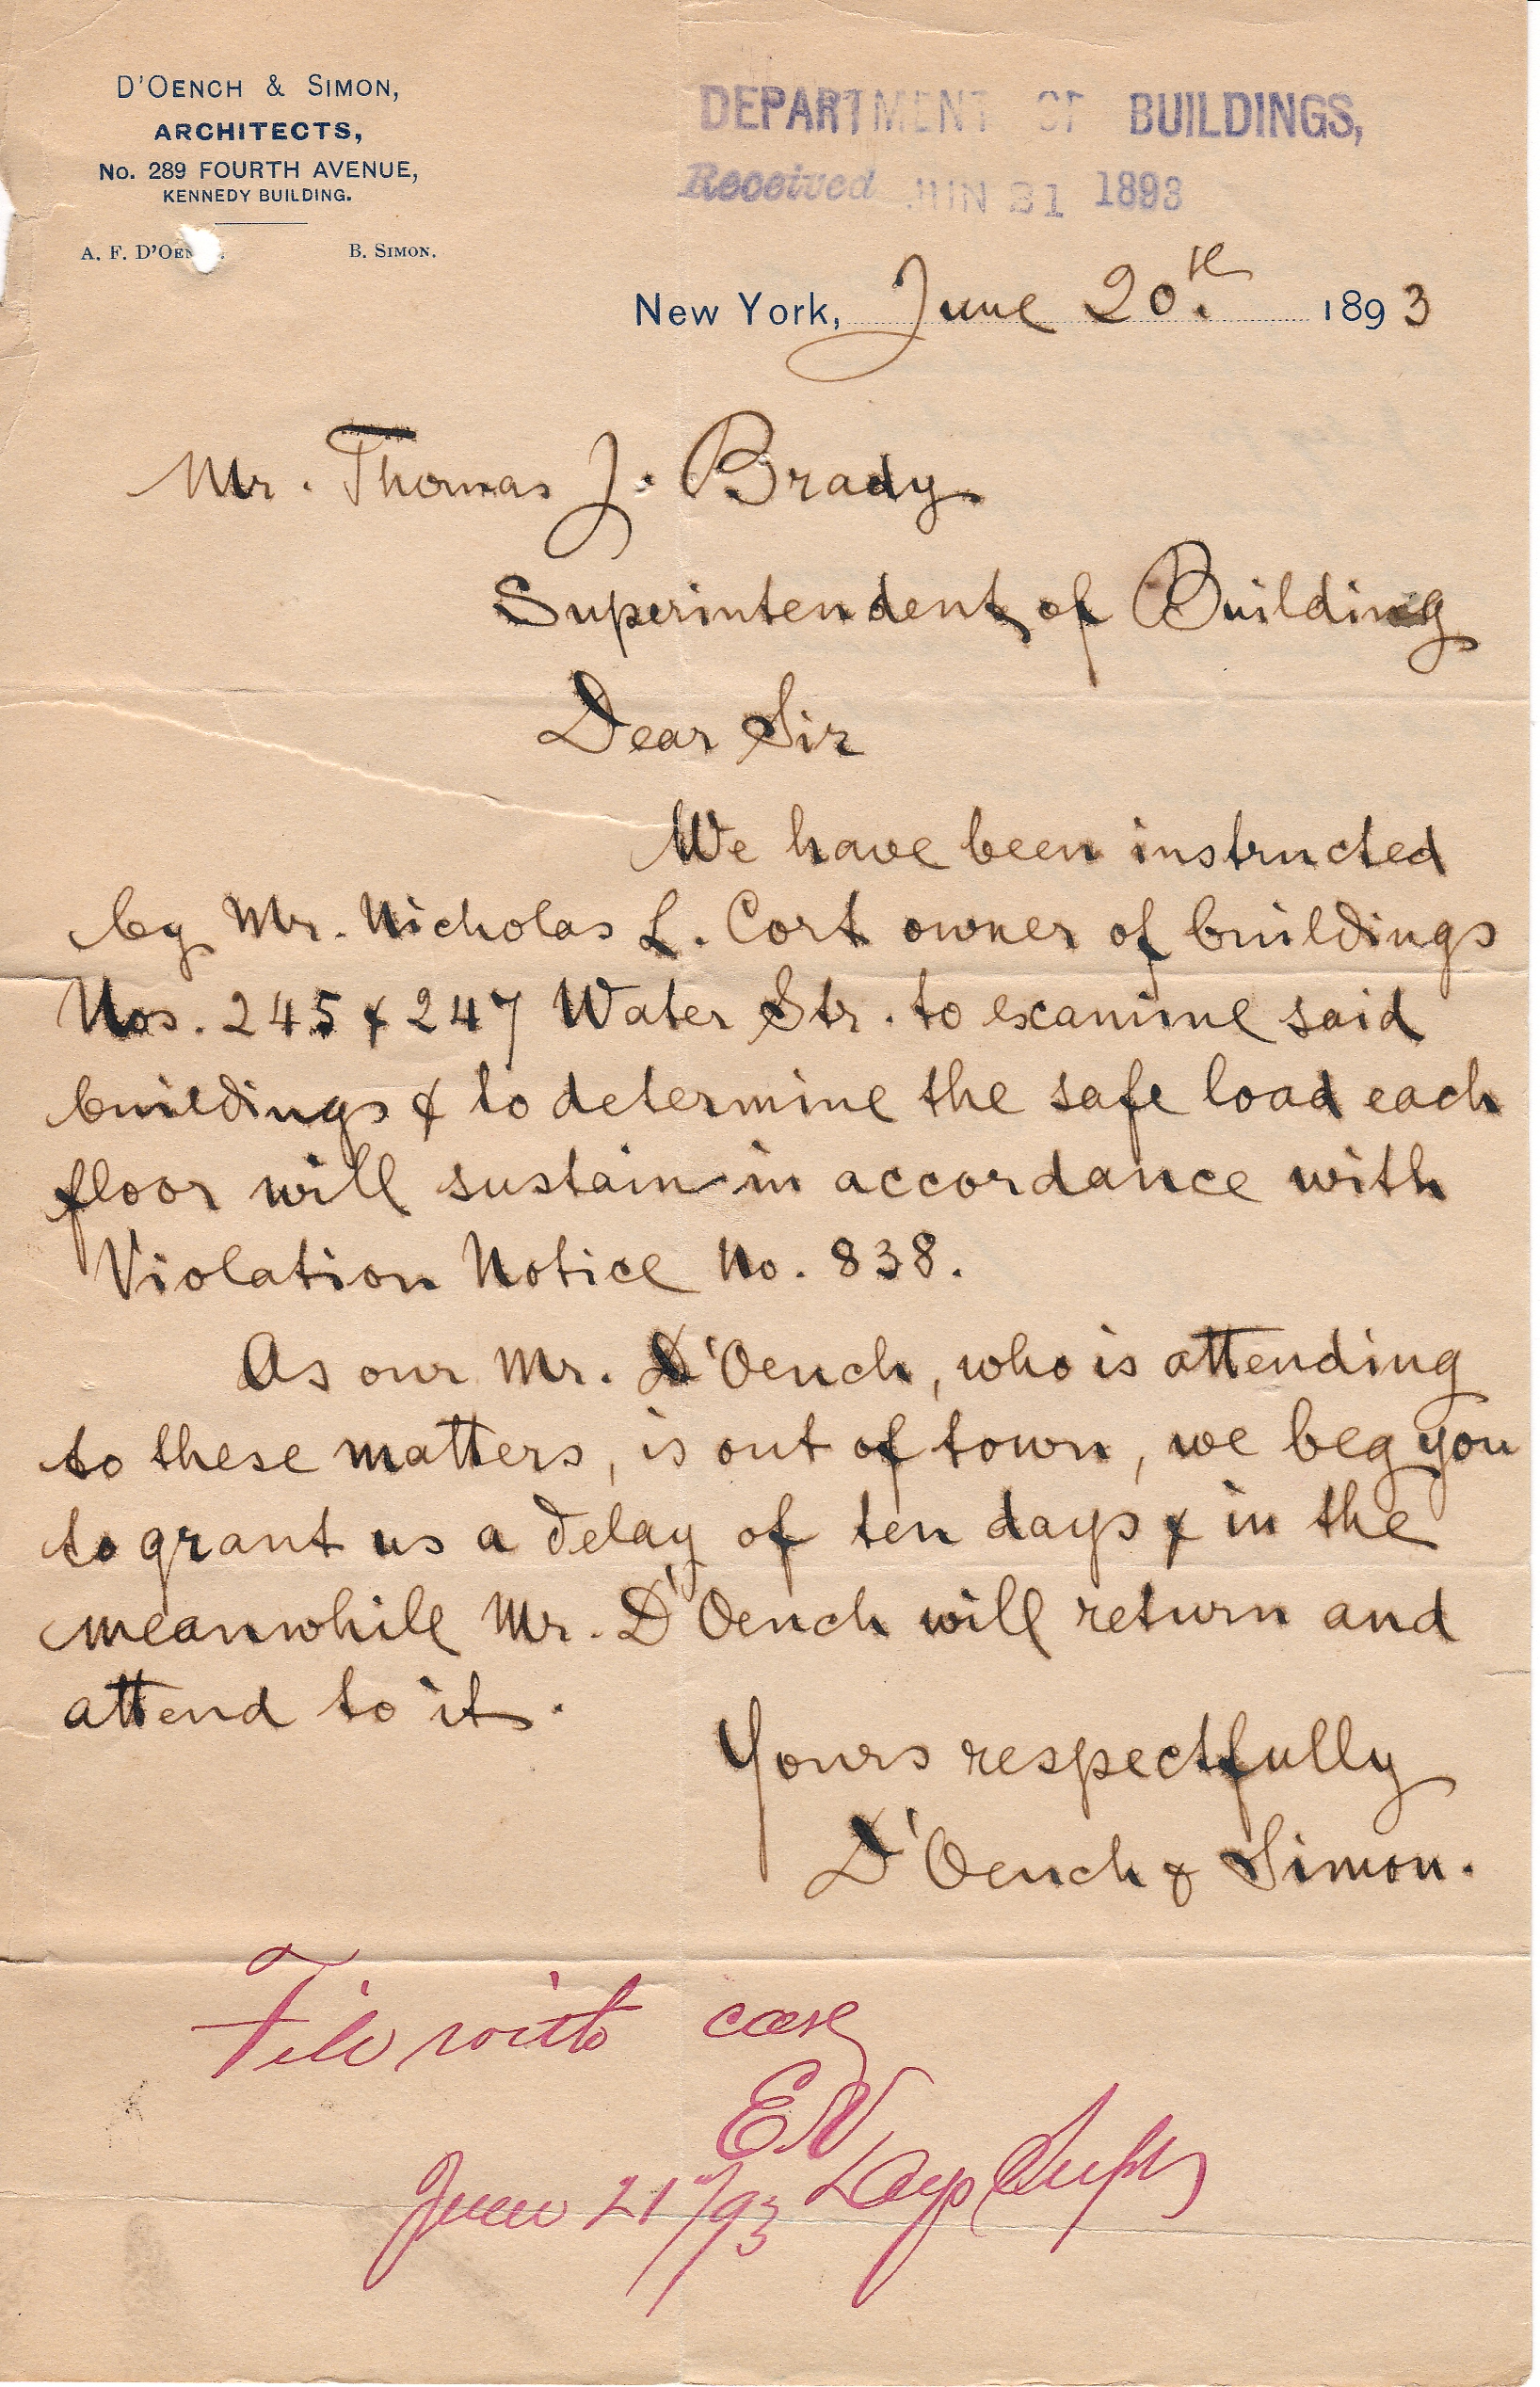 D'OENCH & SIMON,
ARCHITECTS,
No. 289 FOURTH AVENUE,
KENNEDY BUILDING.
A. F. D'OEN
B. SIMON.
DEPARTMENT OF BUILDINGS,
Received JUN 21 1893
New York, June 20th. 1893
Mr. Thomas J. Brady
Superintendent of Building
Dear Sir
We have been instructed
by Mr. Nicholas L. Cort owner of buildings
Nos. 245 & 247 Water Str. to examine said
buildings & to determine the safe load each
floor will sustain in accordance with
Violation Notice No. 838.
As our Mr. D'Oench, who is attending
to these matters, is out of town, we beg you
to grant us a delay of ten days & in the
meanwhile Mr. D'Oench will return and
attend to it.
Yours respectfully
D'Oench & Simon.
File with case
June 21st/93